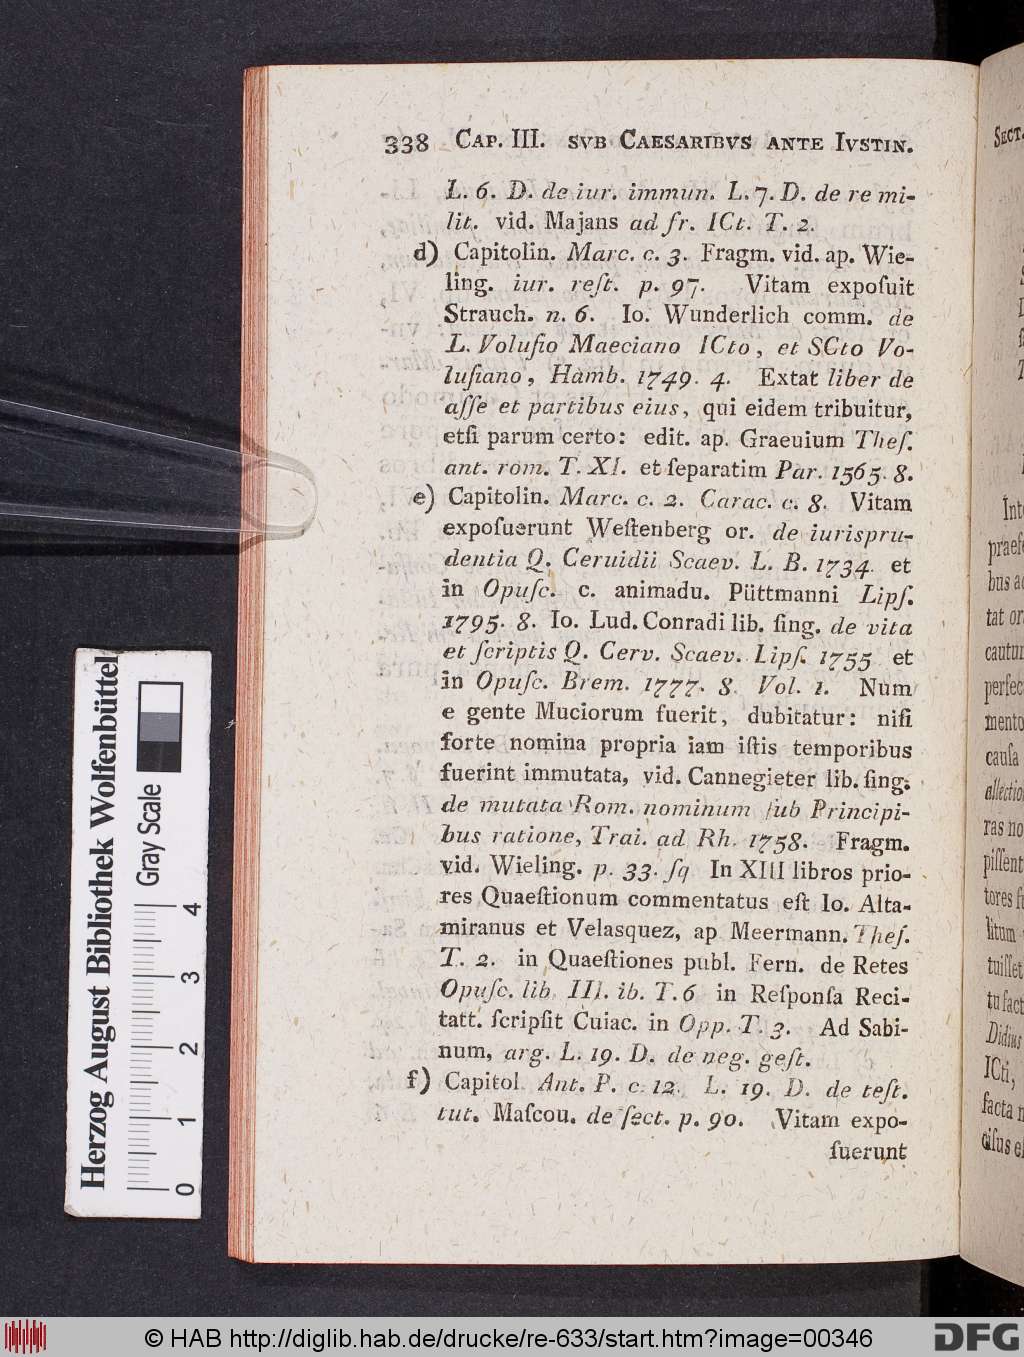 338 CAP. III. SVB CAESARIBVS ANTE IVSTIN.
L. 6. D. de iur. immun. L. 7. D. de re mi-
lit. vid. Majans ad fr. ICt. T. 2.
d) Capitolin. Marc. c. 3. Fragm. vid. ap. Wie-
ling. iur. reſt. p. 97. Vitam expoſuit
Strauch. n. 6. Io. Wunderlich comm. de
L. Voluſio Maeciano ICto, et SCto Vo-
luſiano, Hamb. 1749. 4. Extat liber de
aſſe et partibus eius, qui eidem tribuitur,
etſi parum certo: edit. ap. Graeuium Theſ.
ant. rom. T. XI. et ſeparatim Par. 1565. 8.
e) Capitolin. Marc. c. 2. Carac. c. 8. Vitam
expoſuerunt Weſtenberg or. de iurispru-
dentia Q. Ceruidii Scaev. L. B. 1734. et
in Opuſc. c. animadu. Püttmanni Lipſ.
1795. 8. Io. Lud. Conradi lib. ſing. de vita
et ſcriptis Q. Cerv. Scaev. Lipſ. 1755 et
in Opuſc. Brem. 1777. 8. Vol. 1. Num
e gente Muciorum fuerit, dubitatur: niſi
forte nomina propria iam iſtis temporibus
fuerint immutata, vid. Cannegieter lib. ſing.
de mutata Rom. nominum ſub Principi-
bus ratione, Trai. ad Rh. 1758. Fragm.
vid. Wieling. p. 33. ſq In XIII libros prio-
res Quaeſtionum commentatus eſt Io. Alta-
miranus et Velasquez, ap Meermann. Theſ.
T. 2. in Quaeſtiones publ. Fern. de Retes
Opuſc. lib. III. ib. T. 6 in Reſponſa Reci-
tatt. ſcripſit Cuiac. in Opp. T. 3. Ad Sabi-
num, arg. L. 19. D. de neg. geſt.
f) Capitol. Ant. P. c. 12. L. 19. D. de teſt.
tut. Maſcou. de ſect. p. 90. Vitam expo-
ſuerunt
SECT.
Int
praefe
bus ac
tat or
cautum
perfec
mento
cauſa
allectio
ras no
piſſent
tores fu
litum
tuiſſet
tu fact
Didius
ICti,
facta n
ciſus eſ
Herzog August Bibliothek Wolfenbüttel
Gray Scale
0 1 2 3 4
© HAB http://diglib.hab.de/drucke/re-633/start.htm?image=00346
DFG